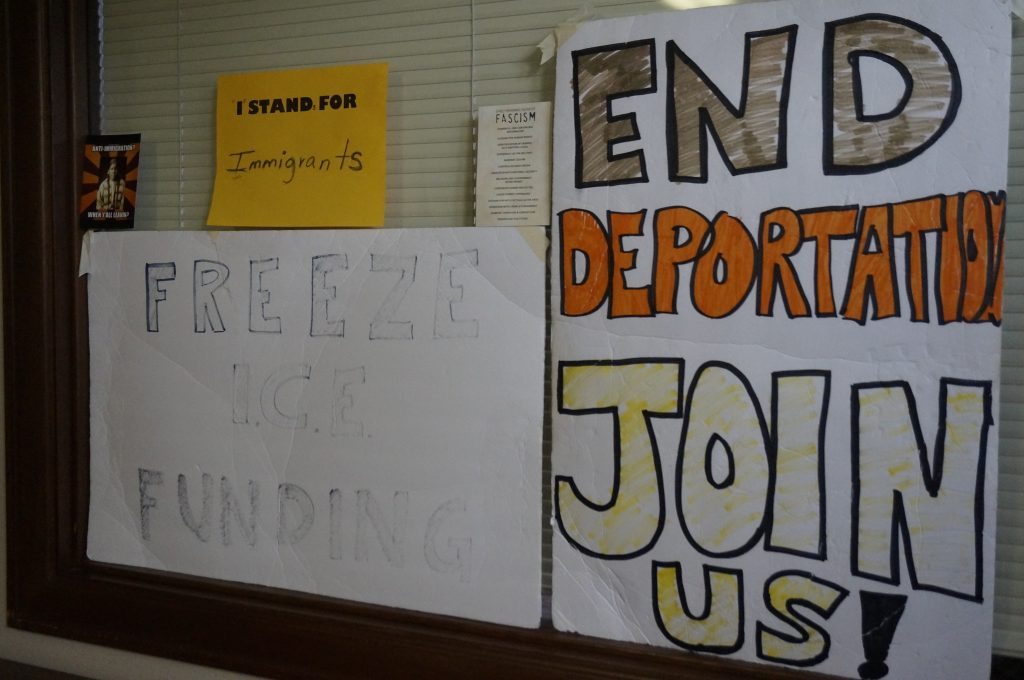 ANTI-IMMIGRATION?
WHEN Y'ALL LEAVIN?
I STAND FOR
Immigrants
FASCISM
FREEZE
I.C.E.
FUNDING
END
DEPORTATION
JOIN
US!